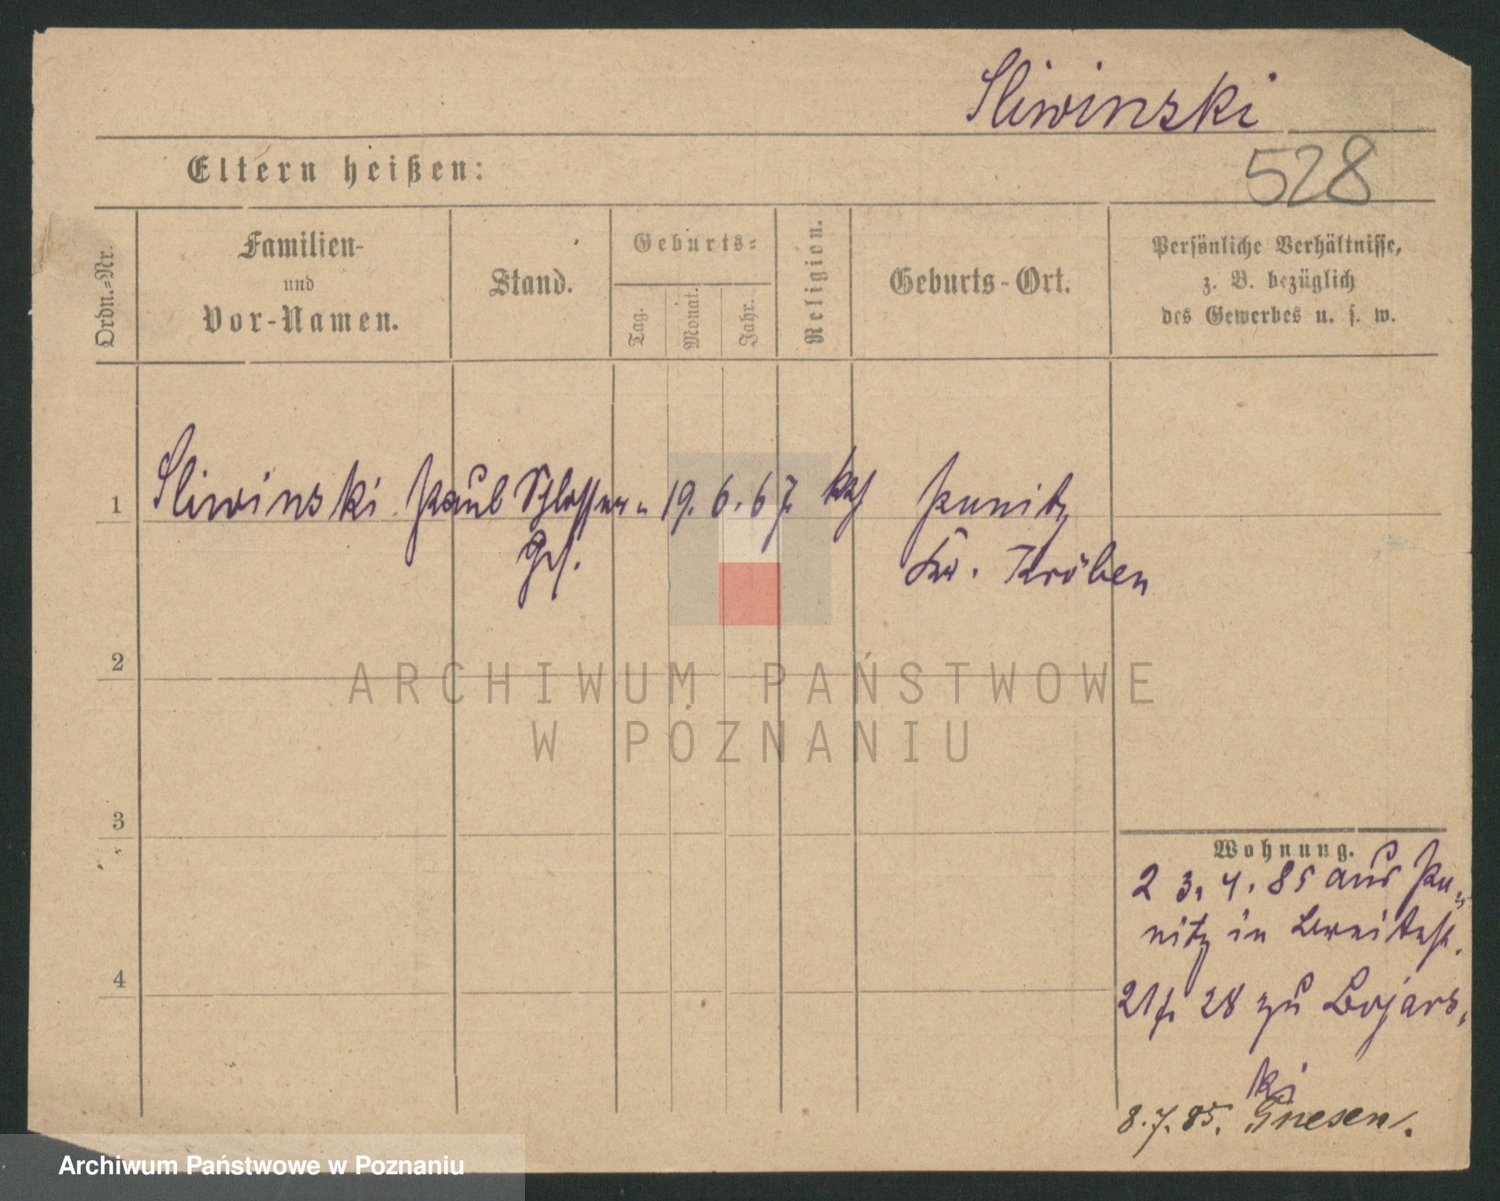 Sliwinski
528
Eltern heißen:
Ordn.-Nr.
Familien-
und
Vor-Namen.
Stand.
Geburts-
Tag.
Monat.
Jahr.
Religion.
Geburts-Ort.
Persönliche Verhältnisse,
z. B. bezüglich
des Gewerbes u. s. w.
1 Sliwinski Paul Schlosser- 19. 6. 67. kath Punitz
Ges. Kr. Kröben
2
3
4
Wohnung.
23. 4. 85 aus Pu-
nitz in Breitest.
28 zu Bojars-
ki
8.7.85. Gnesen.
ARCHIWUM PAŃSTWOWE
W POZNANIU
Archiwum Państwowe w Poznaniu